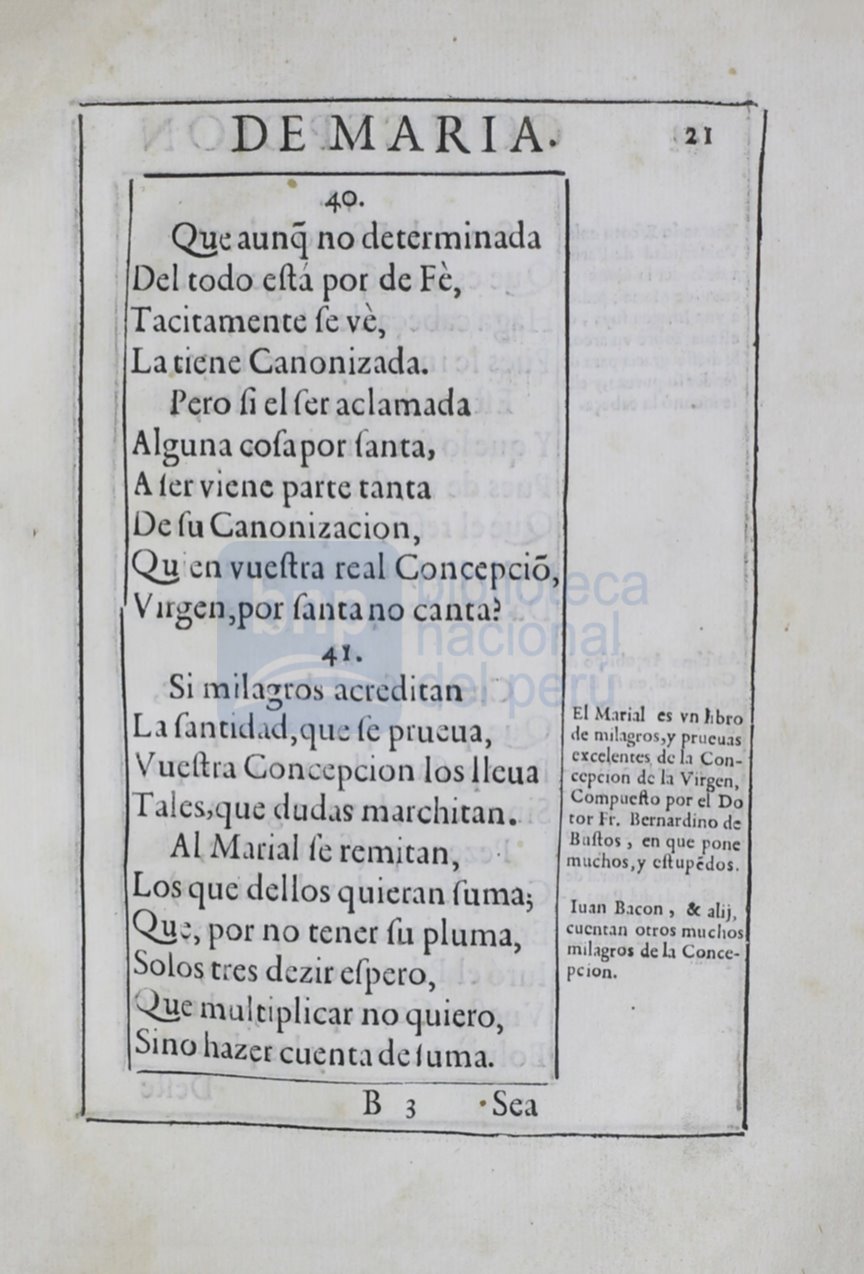 DE MARIA.
21
40.
Que aunq̃ no determinada
Del todo eſtá por de Fè,
Tacitamente ſe vè,
La tiene Canonizada.
Pero ſi el ſer aclamada
Alguna coſa por ſanta,
A ſer viene parte tanta
De ſu Canonizacion,
Qu en vueſtra real Concepciō,
Virgen, por ſanta no canta?
41.
Si milagros acreditan
La ſantidad, que ſe prueua,
Vueſtra Concepcion los lleua
Tales, que dudas marchitan.
Al Marial ſe remitan,
Los que dellos quieran ſuma;
Que, por no tener ſu pluma,
Solos tres dezir eſpero,
Que multiplicar no quiero,
Sino hazer cuenta de ſuma.
El Marial es vn libro
de milagros, y prueuas
excelentes de la Con-
cepcion de la Virgen,
Compueſto por el Do
tor Fr. Bernardino de
Buſtos, en que pone
muchos, y eſtupēdos.
Iuan Bacon, & alij,
cuentan otros muchos
milagros de la Conce-
pcion.
B 3
Sea
bnp
biblioteca
nacional
del perú